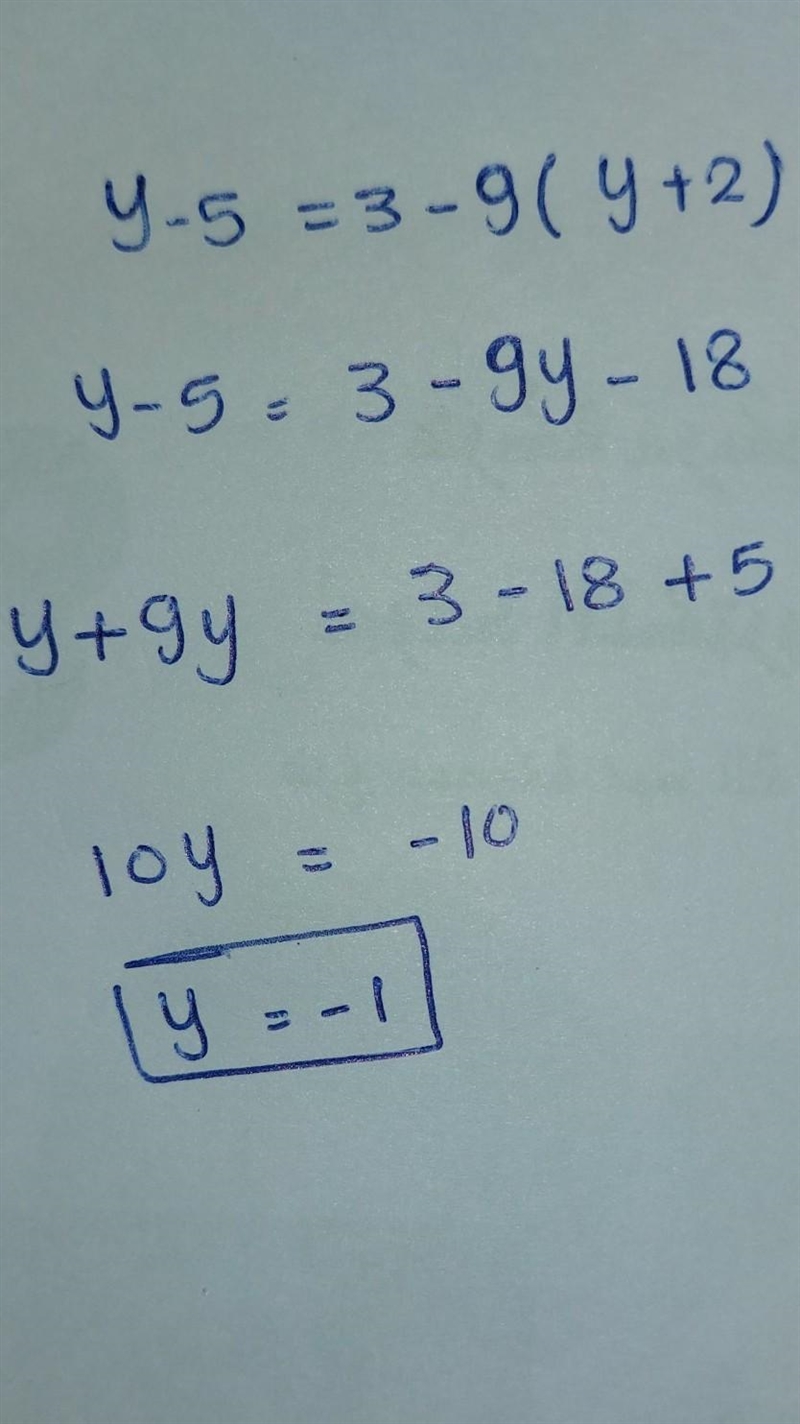 y - 5 = 3 - 9( y + 2)
y - 5 = 3 - 9y - 18
y + 9y = 3 - 18 + 5
10y = -10
y = -1